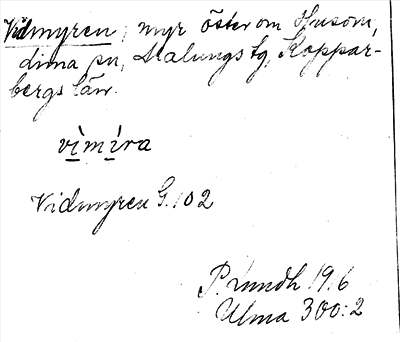 Vidmyren, myr öster om Husom,
dima sn, Malungs tg, Koppar-
bergs län.
vìmìra
Vidmyren G.102
P. Lundh 1916
Ulma 300:2